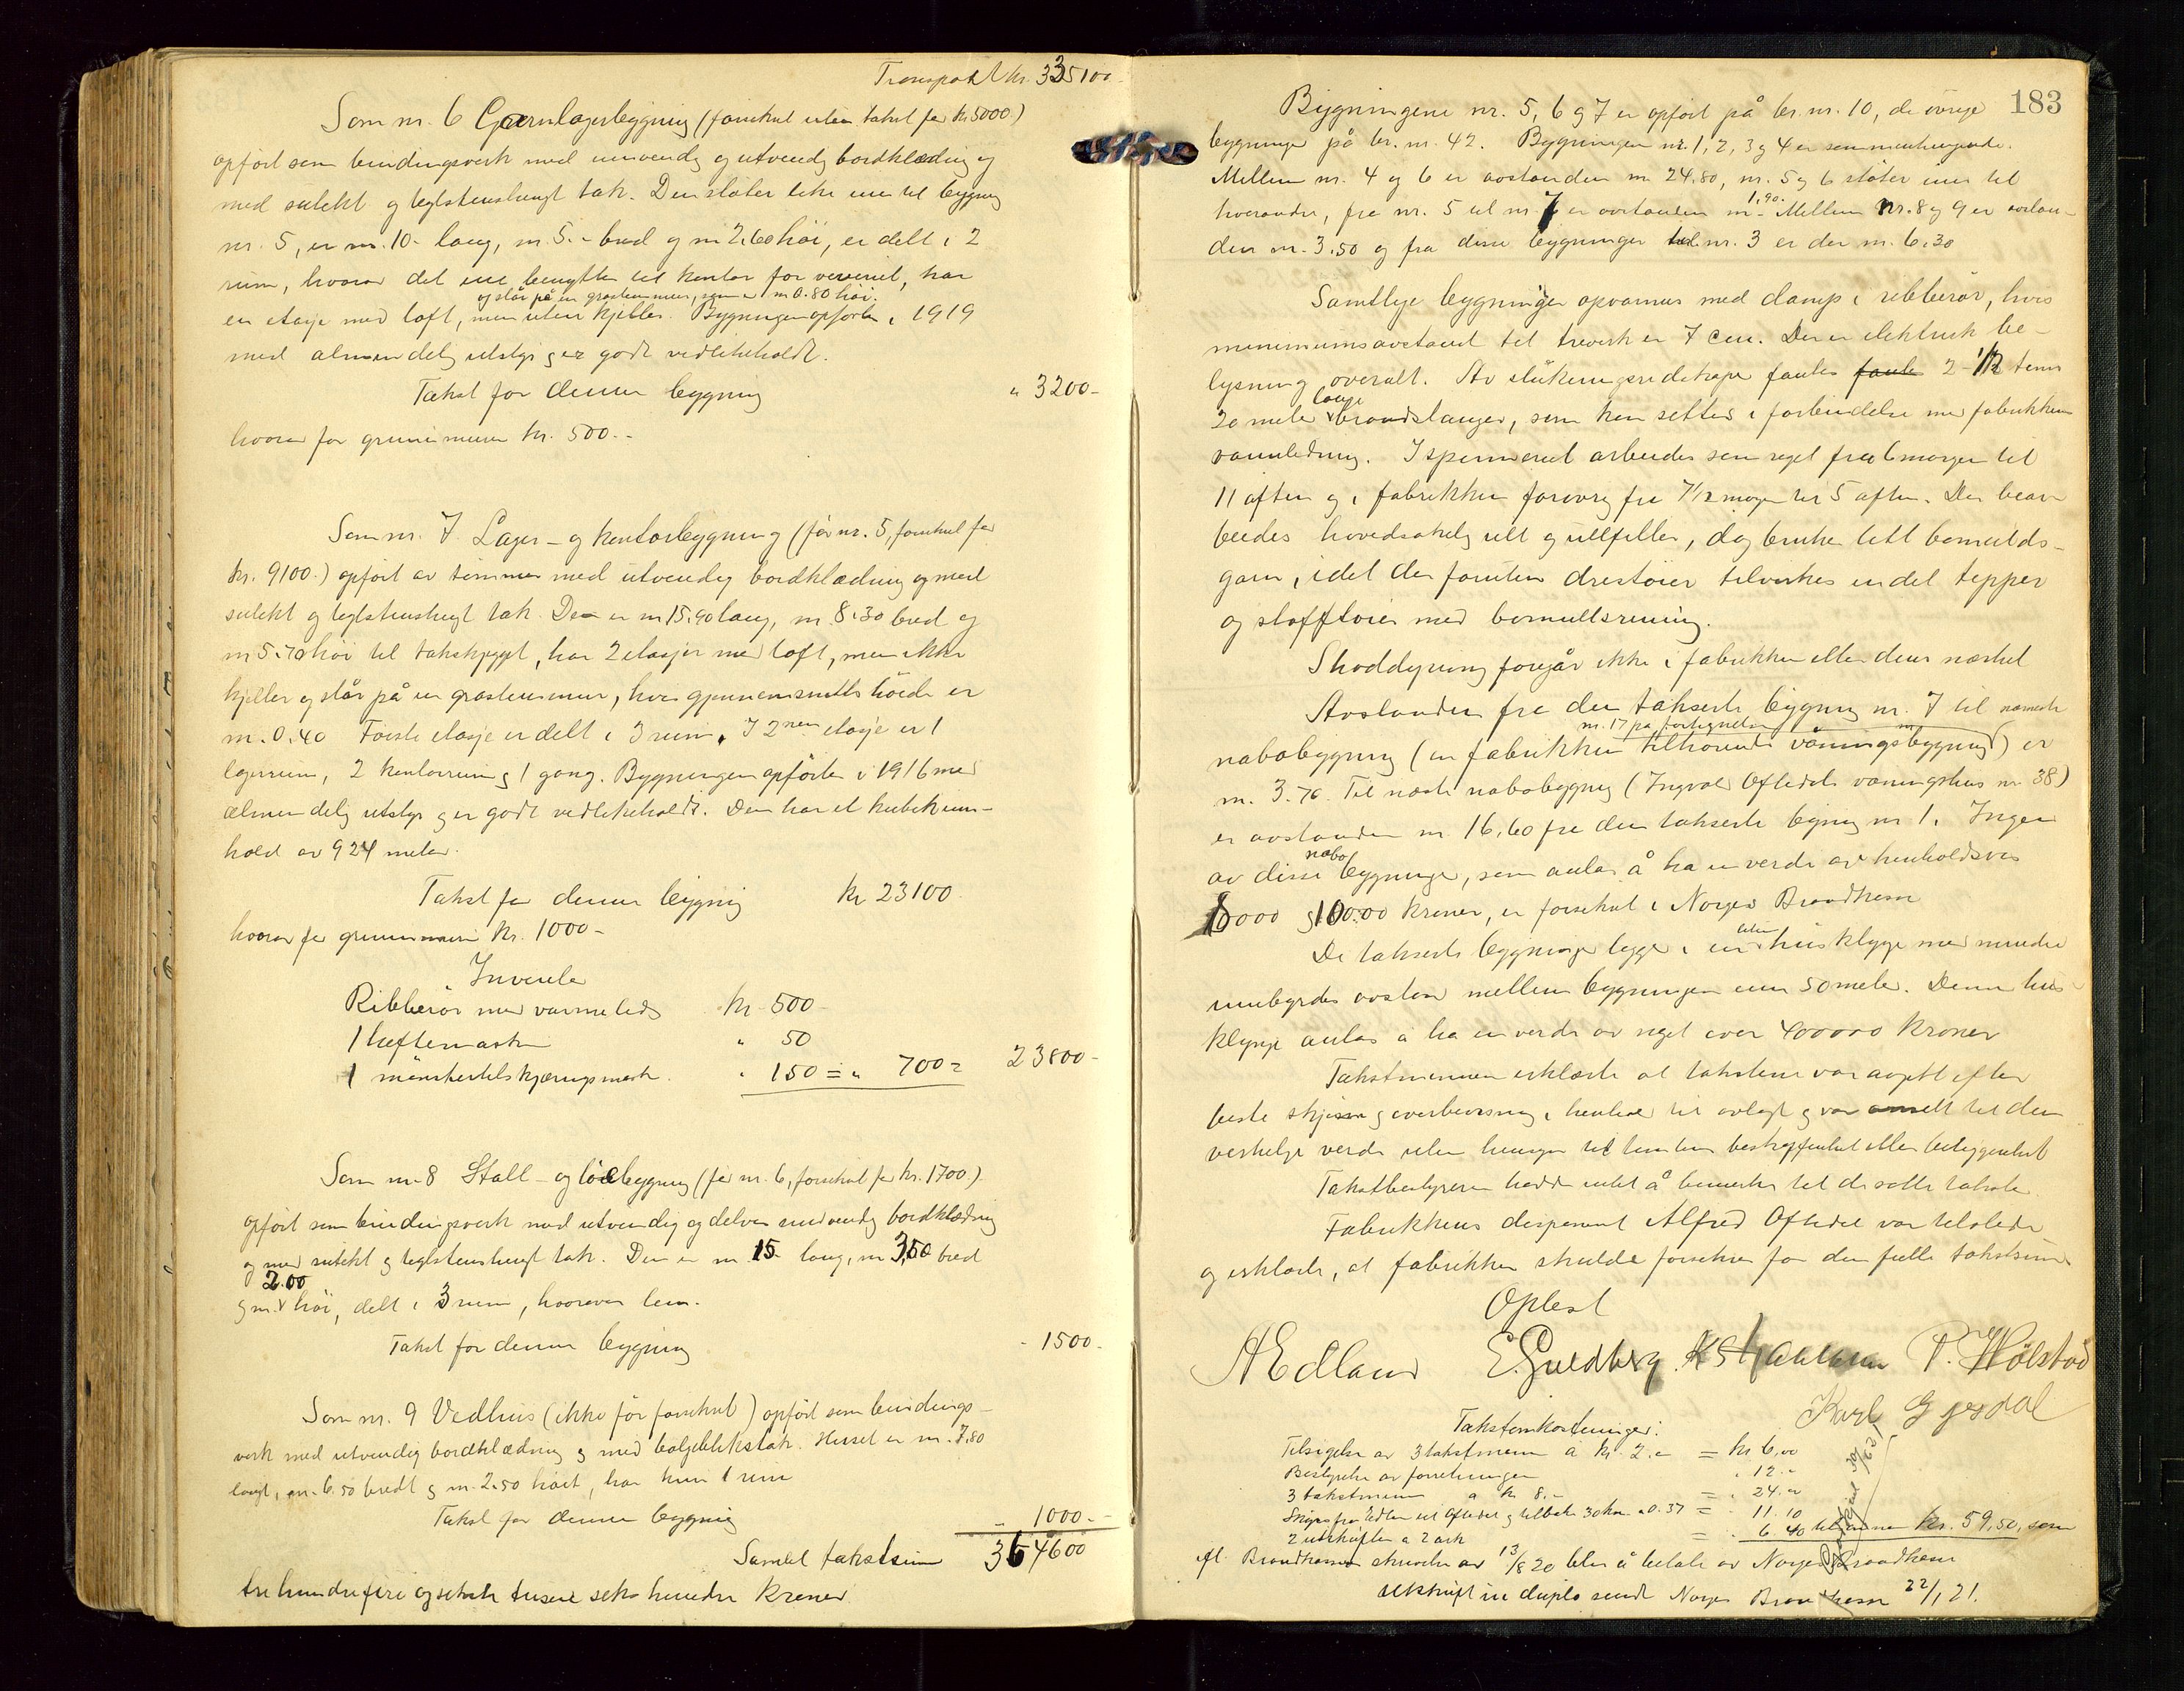 Transport kr. 335100-
Som nr. 6 Garnlagerbygning (forsikret uten takst for kr 5000)
opfört som bindingsverk med innvendig og utvendig bordklædning og
med sutekt og teglstenshengt tak. Den stöter like inn til bygning
nr. 5, er m. 10- lang, m. 5.- bred og m 2,60 höi, er delt i 2
rum, hvorav det ene benyttes til kontor for veveriet, har
og står på en gråstensmur, som er m 0.80 höi.
en etasje med loft, men uten kjeller. Bygningen opförtes i 1919
med almindelig utstyr og er godt vedlikeholdt.
Takst for denne bygning " 3200-
hvorav for grunnmuren kr. 500.-
Som nr. 7 Lager- og kontorbygning (för nr. 5, forsikret for
kr. 9100.) opfört av tömmer med utvendig bordklædning og med
sutekt og teglstenshengt tak. Den er m 15,90 lang, m. 8.30 bred og
m 5.70 höi til takskjegget, har 2 etasjer med loft, men ikke
kjeller og står på en gråstensmur, hvis gjennemsnittshöide er
m. 0,40 Förste etasje er delt i 3 rum. I 2nen etasje er 1
lagerrum, 2 kontorrum og 1 gang. Bygningen opförtes i 1916 med
almindelig utstyr og er godt vedlikeholdt. Den har et kubikinn-
hold av 924 meter.
Takst for denne bygning kr 23100.
hvorav for grunnmuren kr. 1000-
Inventar
Ribberör med varmeledn kr. 500-
1 heftemaskin " 50
1 mönstertilskjæringsmask. " 150 = " 700 = 23800-
Som nr. 8 Stall- og löebygning (för nr. 6, forsikret for kr. 1700.)
opfört som bindingsverk med utvendig og delvis innvendig bordklædning
og med sutekt og teglstenshengt tak. Den er m 15 lang, m 3,50 bred
2.00
og m. höi, delt i 3 rum, hvorover lem.
Takst for denne bygning - 1500.
Som nr. 9 Vedhus (ikke för forsikret) opfört som bindings-
verk med utvendig bordklædning og med bölgeblikstak. Huset er m. 7.80
langt, m. 6.50 bredt og m. 2.50 höit, har kun 1 rum
Takst for denne bygning - 1000.-
Samlet takstsum 364600
tre hundre fire og seksti tusen seks hundre kroner
183
Bygningene nr. 5, 6 og 7 er opfört på br. nr. 10, de övrige
bygninger på br. nr. 42. Bygningene nr. 1, 2, 3 og 4 er sammenhengende.
Mellem nr. 4 og 6 er avstanden m 24.80, nr. 5 og 6 stöter inn til
1,90.
hverandre, fra nr. 5 til nr 7 er avstanden m- Mellem nr. 8 og 9 er avstan-
den m. 3.50 og fra disse bygninger til nr. 3 er der m. 6.30
Samtlige bygninger opvarmes med damp i ribberör, hvis
minimumsavstand til treverk er 7 cm. Der er elektrisk be-
lysning overalt. Av slukningsredskaper fantes fantes 2-1 1/2 toms
lange
20 meter brandslanger, som kan settes i forbindelse med fabrikkens
vannledning. I spinneriet arbeides som regel fra 6 morgen til
11 aften og i fabrikken forövrig fra 7 1/2 morgen til 5 aften. Der bear-
beides hovedsakelig ull og ullfiller, dog brukes litt bomulds-
garn, idet der foruten drestöier tilvirkes en del tepper
og stofftöier med bomullsrenning.
Shoddyrivning foregår ikke i fabrikken eller dens nærhet
Avstanden fra den takserte bygning nr. 7 til nærmeste
nr. 17 på fortegnelsen
nabobygning (en fabrikken tilhörende våningsbygning) er
m. 3.70. Til næste nabobygning (Ingvald Oftedals våningshus nr 38)
er avstanden m 16,60 fra den takserte bygning nr 1. Ingen
nabo
av disse bygninger, som antas å ha en verdi av henholdsvis
og 10000 kroner, er forsikret i Norges Brandkasse
liten
De takserte bygninger ligger i en husklynge med mindre
innbyrdes avstand mellem bygningene enn 50 meter. Denne hus-
klynge antas å ha en verdi av noget over 400000 kroner
Takstmennene erklærte at takstene var avgitt efter
beste skjönn og overbevisning i henhold til avlagt ed var ansatt til den
virkelige verdi uten hensyn til tomtens beskaffenhet eller beliggenhet
Takstbestyreren hadde intet å bemerke til de satte takster.
Fabrikkens disponent Alfred Oftedal var tilstede
og erklærte, at fabrikken skulde forsikres for den fulle takstsum.
Oplest
A Edland E. Gundberg P. Hölstad
Karl Gjesdal
Takstomkostninger:
Tilsigelse av 3 takstmenn a kr. 2.- = kr 6,00
Bestyrelse av forretningen " 12.-
3 takstmenn a kr 8.- = " 24.-
Skyss fra Edland til Oftedal og tilbake 30 km a 0.37 = " 11.10
2 utskrifter a 2 ark = " 6 40 tilsammen kr. 59,50, som
ifl. Brandkassens skrivelse av 13/8 20 blir å betale av Norges Brandkasse
Utskrift in duplo sendt Norges Brandkasse 22/1 21.